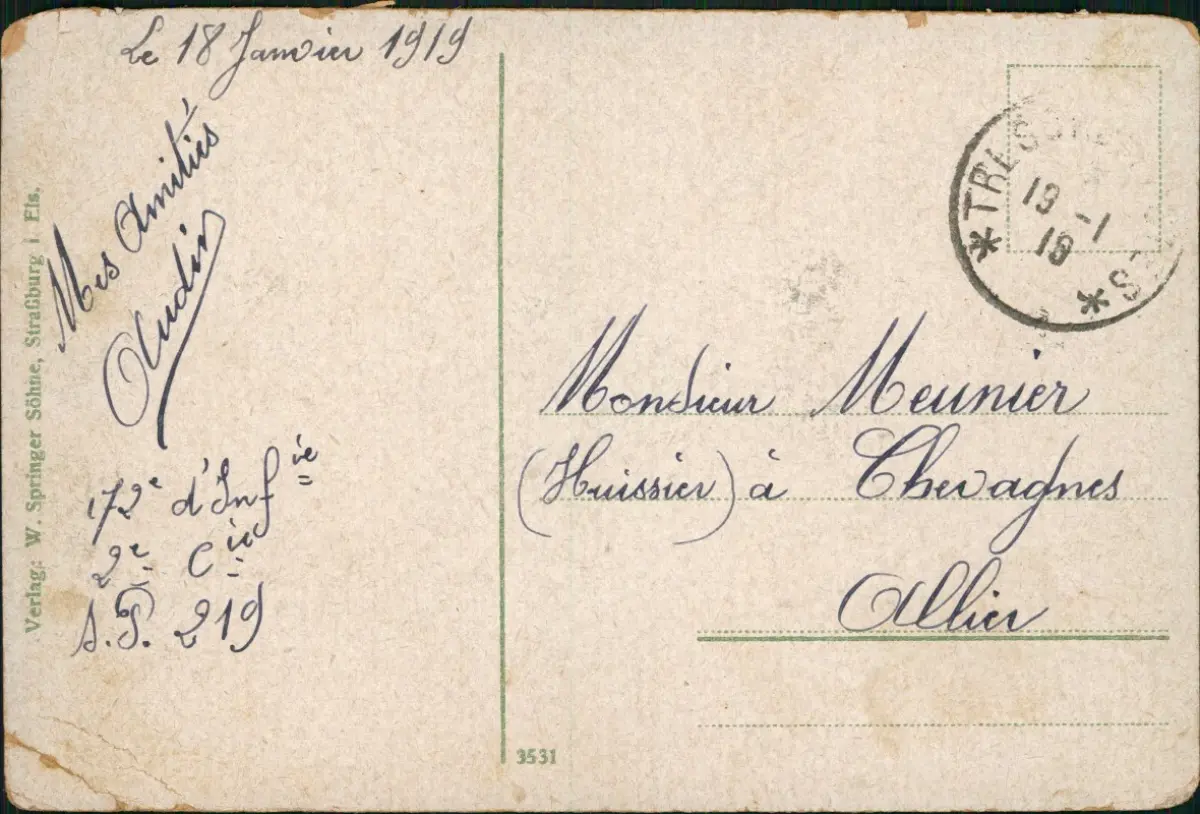 Le 18 Janvier 1919
Mes Amitiés
Audin
172e d'Infie
2e Cie
S.P. 219
Verlag: W. Springer Söhne, Straßburg i. Els.
19 -1
19
Monsieur Meunier
(Huissier) à Chevagnes
Allier
3531